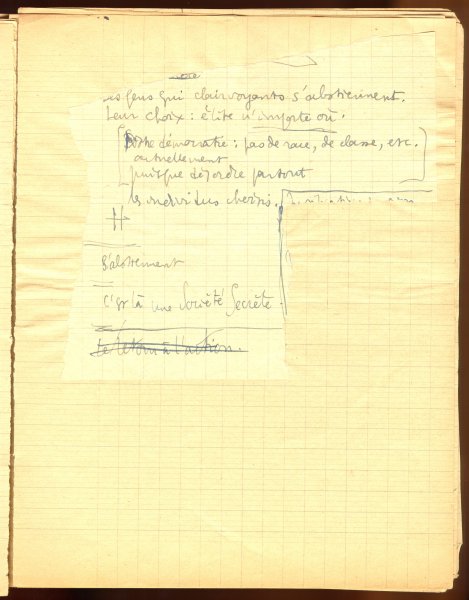 gens qui clairvoyants s'abstiennent.
Leur choix : élite n'importe où.
démocratie : pas de race, de classe, etc.
actuellement
puisque désordre partout
les individus choisis.
S'abstiennent
C'est là une Société Secrète.
Le retour à l'action.